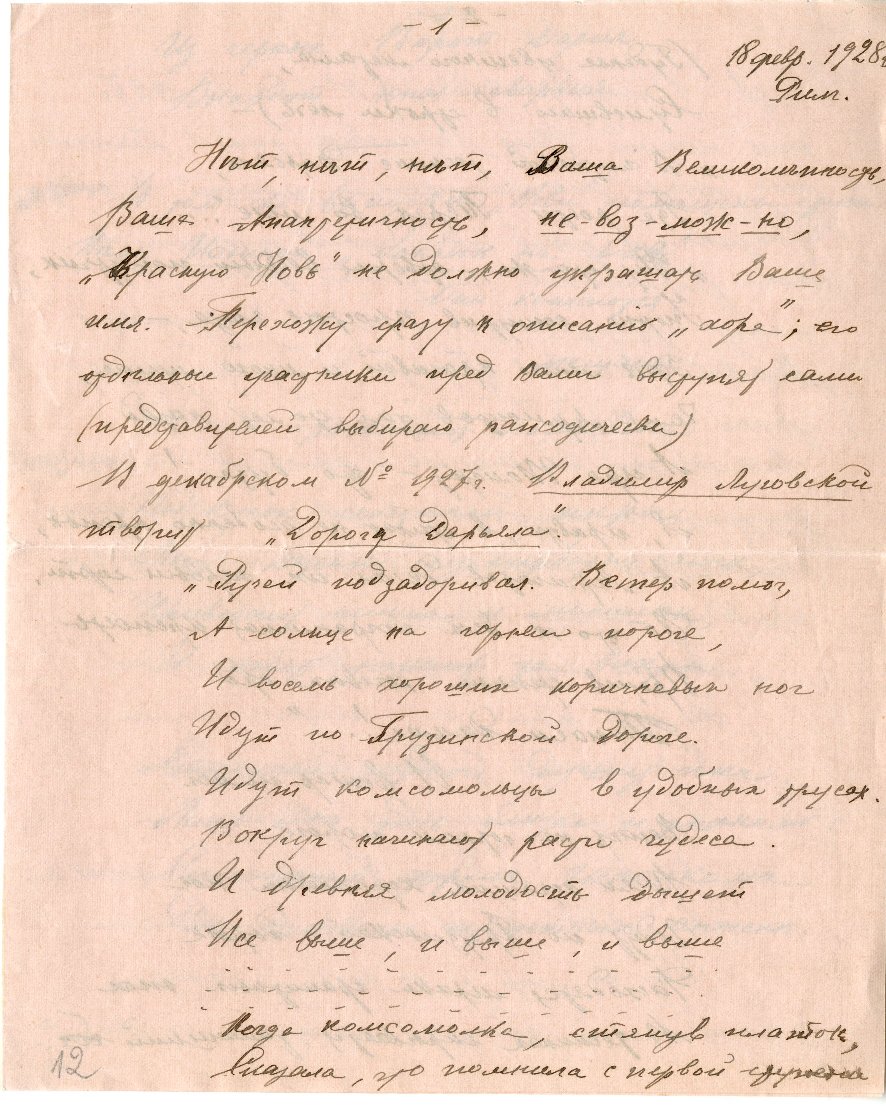 – 1 –
18 февр. 1928 г.
Рим.
Нѣт, нѣт, нѣт, Ваша Великолѣпность,
Ваша не-воз-мож-но,
„Красную Новь" не должно украшать Ваше
имя. Перехожу сразу к описанію „хора"; его
отдѣльные участники пред Вами выступят сами
(представителей выбираю рапсодически)
В декабрьском № 1927 г. Владимір Луговской
творит „Дорогу Дарьяла".
„Ручей подзадоривал. Ветер помог,
А солнце на горнем пороге,
И восемь хороших коричневых ног
Идут по Грузинской дороге.
Идут комсомольцы в удобных трусах.
Вокруг начинают расти чудеса.
И древняя молодость дышет
Все выше, и выше, и выше
Когда комсомолка, стянув платок,
Сказала, что помнила с первой
12